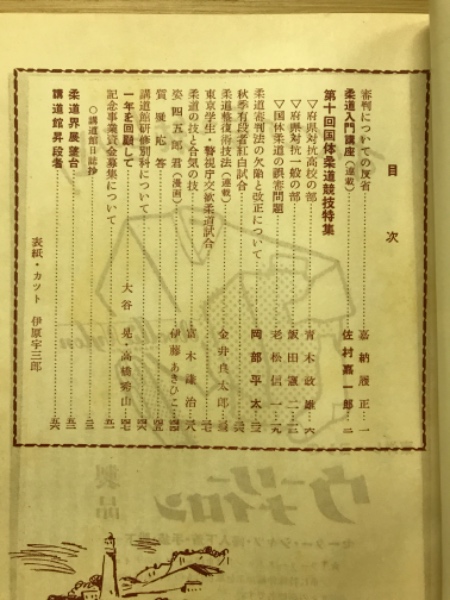 目次
審判についての反省……嘉納履正…一
柔道入門講座(連載)……佐村嘉一郎…二
第十回国体柔道競技特集
▽府県対抗高校の部……青木政雄…六
▽府県対抗一般の部……飯田憲二…一二
▽国体柔道の誤審問題……老松信一…一九
柔道審判法の欠陥と改正について……岡部平太…二三
秋季有段者紅白試合……二六
柔道整復術技法(連載)……金井良太郎…三六
東京学生・警視庁交歓柔道試合……三七
柔道の技と合気の技……富木謙治…三八
姿四五郎君(漫画)……伊藤あきひこ…四四
質疑応答……四五
講道館研修別科について……四六
一年を回顧して……大谷晃・高橋秀山…四七
記念事業資金募集について……五一
○講道館日誌抄……
柔道界展望台……五三
講道館昇段者……五六
表紙・カット 伊原宇三郎
製品